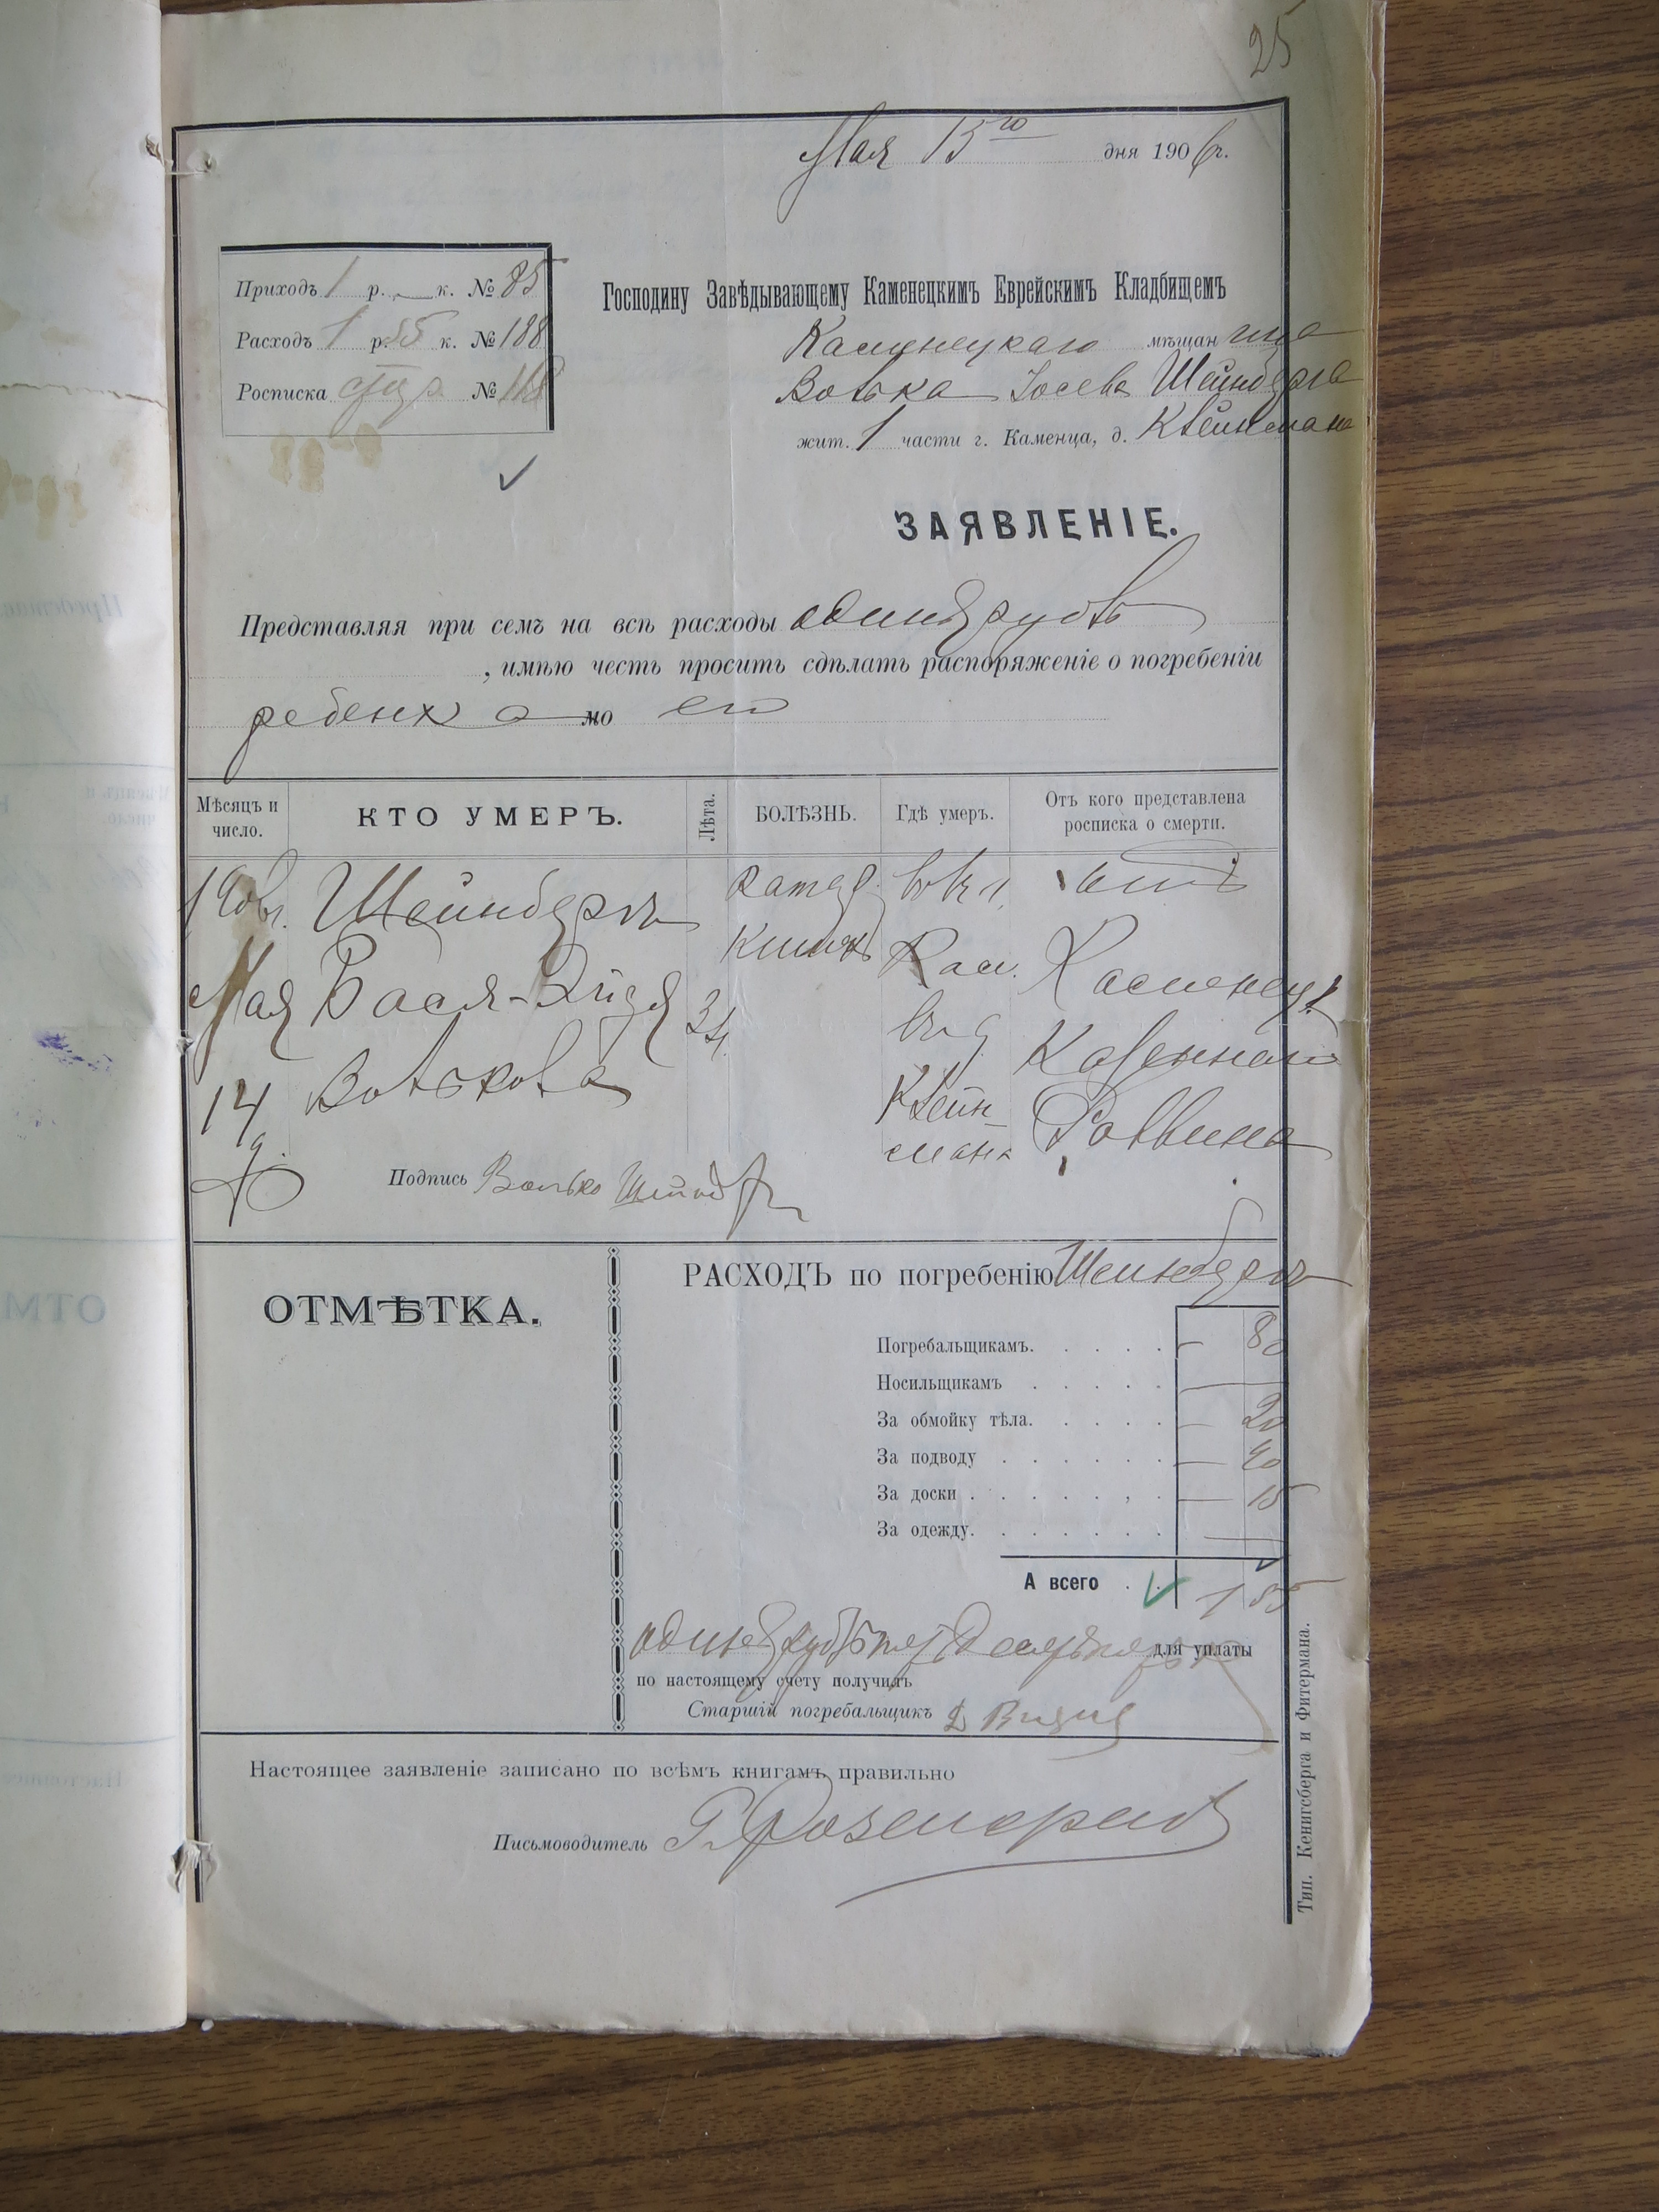 25
Мая 15го дня 1906 г.
Приходъ 1 р. — к. № 85
Расходъ 1 р. 55 к. № 188
Росписка стр. № 118
Господину Завѣдывающему Каменецкимъ Еврейскимъ Кладбищемъ
Каменецкаго мѣщанина
Волька Іосева Шейнберга
жит. 1 части г. Каменца, д. Клейнмана
ЗАЯВЛЕНІЕ.
Представляя при семъ на всѣ расходы одинъ рубль
, имѣю честь просить сдѣлать распоряженіе о погребеніи
ребенка моего
Мѣсяцъ и число.
КТО УМЕРЪ.
Лѣта.
БОЛѢЗНЬ.
Гдѣ умеръ.
Отъ кого представлена росписка о смерти.
Мая
14
Шейнбергъ
Бася-
Волькова
катар.
кишекъ
въ
Кам.
въ д.
Клейн-
мана
отъ
Каменецк.
Казеннаго
Раввина
Подпись Волько
ОТМѢТКА.
РАСХОДЪ по погребенію Шейнбергъ
Погребальщикамъ. — 80
Носильщикамъ —
За обмойку тѣла. — 20
За подводу — 40
За доски — 15
За одежду. —
А всего 1 55
одинъ рубль пятьдесятъ пять к. для уплаты
по настоящему счету получилъ
Старшій погребальщикъ
Настоящее заявленіе записано по всѣмъ книгамъ правильно
Письмоводитель
Тип. Кенигсберга и Фитермана.